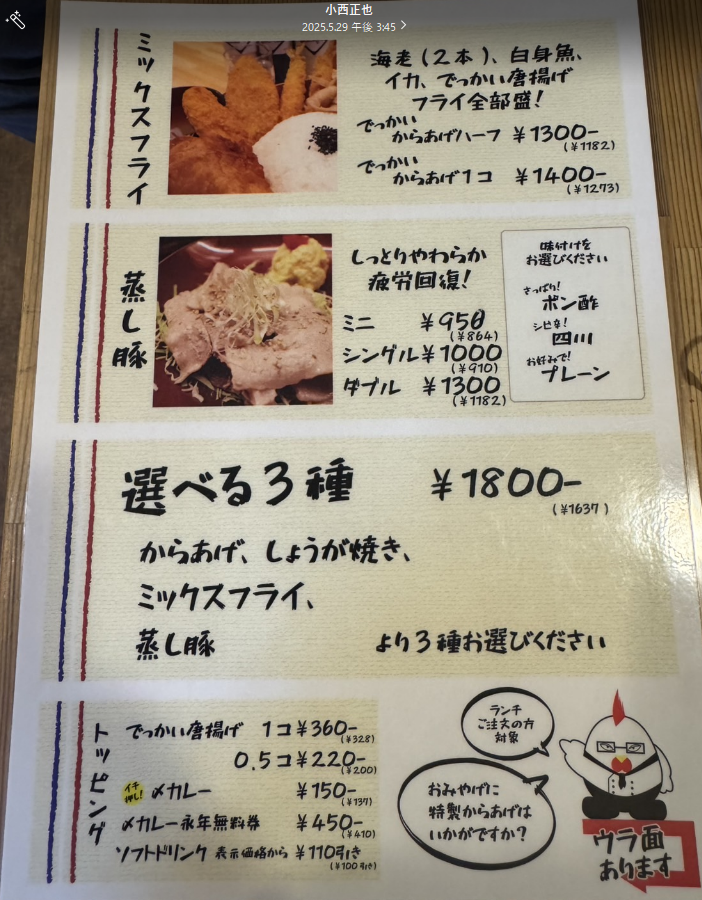 小西正也
2025.5.29 午後 3:45
ミックスフライ
海老(2本)、白身魚、
イカ、でっかい唐揚げ
フライ全部盛!
でっかい
からあげハーフ ¥1300-
(¥1182)
でっかい
からあげ1コ ¥1400-
(¥1273)
蒸し豚
しっとりやわらか
疲労回復!
ミニ ¥950
(¥864)
シングル ¥1000
(¥910)
ダブル ¥1300
(¥1182)
味付けを
お選びください
さっぱり!
ポン酢
シビ辛!
四川
お好みで!
プレーン
選べる3種 ¥1800-
(¥1637)
からあげ、しょうが焼き、
ミックスフライ、
蒸し豚 より3種お選びください
トッピング
でっかい唐揚げ 1コ¥360-
(¥328)
0.5コ¥220-
(¥200)
イチ押し!
〆カレー ¥150-
(¥137)
〆カレー永年無料券 ¥450-
(¥410)
ソフトドリンク 表示価格から ¥110引き
(¥100引き)
ランチ
ご注文の方
対象
おみやげに
特製からあげは
いかがですか?
ウラ面
あります